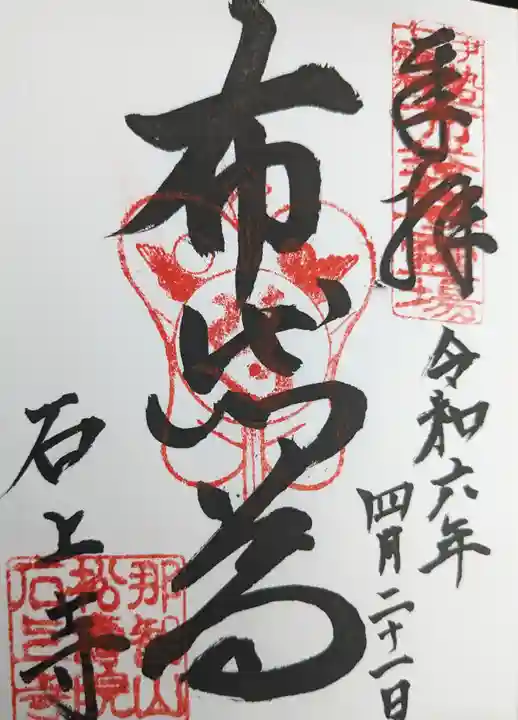 奉拝
令和六年
四月二十一日
布袋尊
石上寺
那智山
松
石上寺